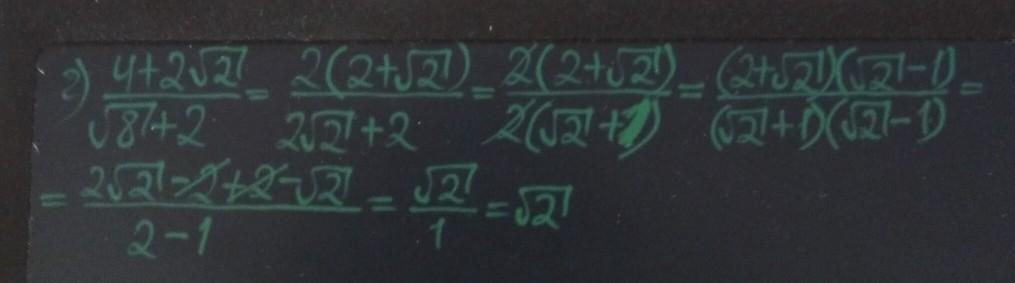 г) (4+2√2)/(√8+2) = 2(2+√2)/(2√2+2) = 2(2+√2)/(2(√2+1)) = (2+√2)(√2-1)/((√2+1)(√2-1)) =
= (2√2-2+2-√2)/(2-1) = √2/1 = √2